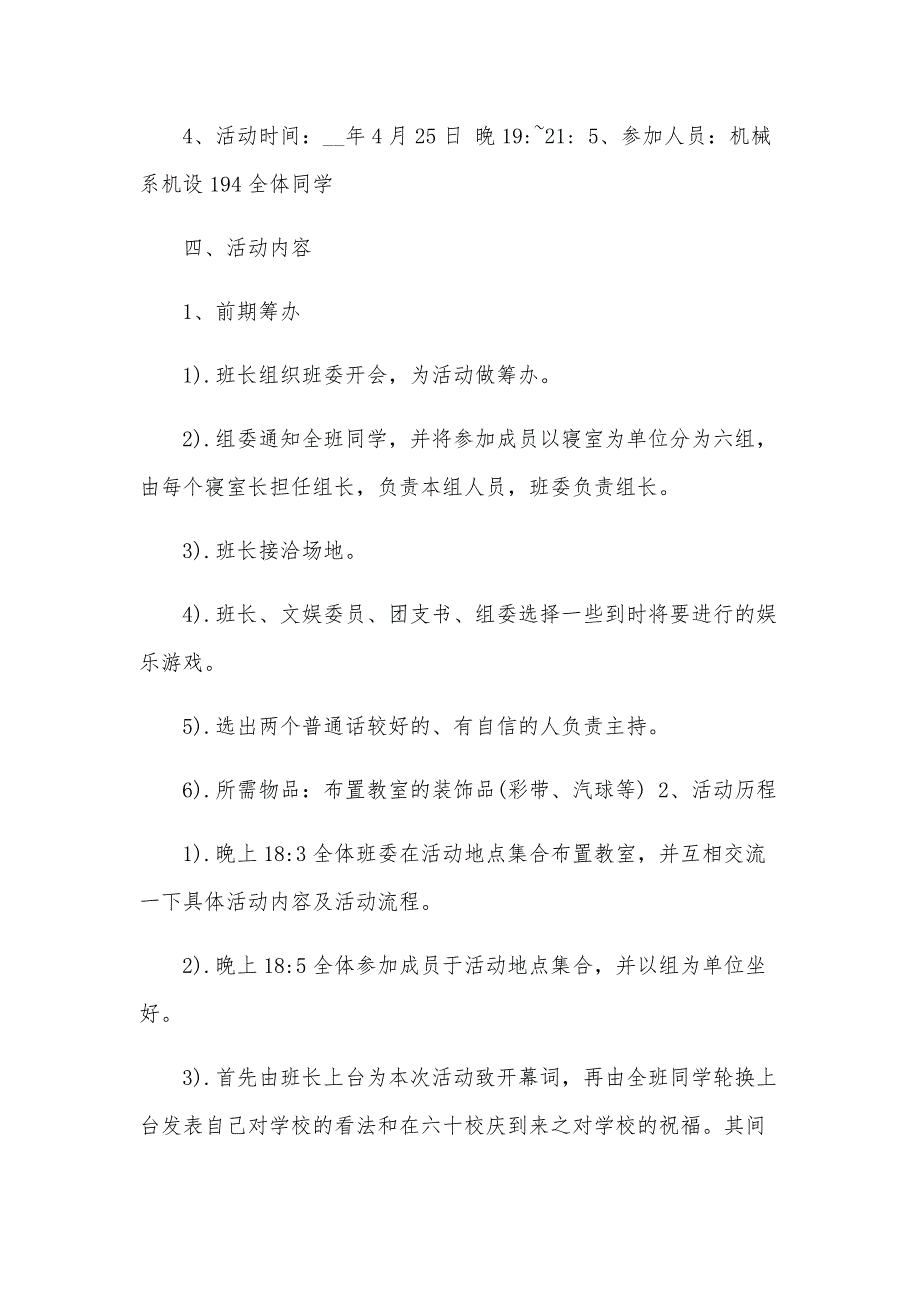 4、活动时间：__年4月25日 晚19:~21: 5、参加人员：机械
系机设194全体同学
四、活动内容
1、前期筹办
1).班长组织班委开会，为活动做筹办。
2).组委通知全班同学，并将参加成员以寝室为单位分为六组，
由每个寝室长担任组长，负责本组人员，班委负责组长。
3).班长接洽场地。
4).班长、文娱委员、团支书、组委选择一些到时将要进行的娱
乐游戏。
5).选出两个普通话较好的、有自信的人负责主持。
6).所需物品：布置教室的装饰品(彩带、汽球等) 2、活动历程
1).晚上18:3全体班委在活动地点集合布置教室，并互相交流
一下具体活动内容及活动流程。
2).晚上18:5全体参加成员于活动地点集合，并以组为单位坐
好。
3).首先由班长上台为本次活动致开幕词，再由全班同学轮换上
台发表自己对学校的看法和在六十校庆到来之对学校的祝福。其间